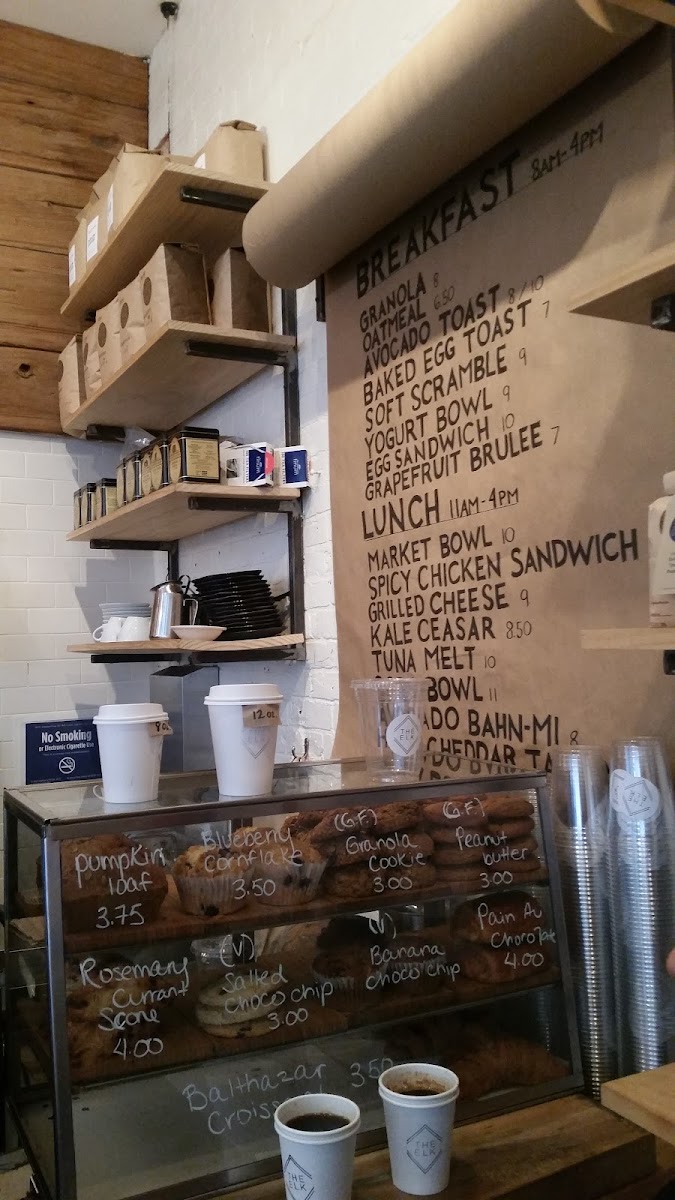 BREAKFAST 8AM-4PM
GRANOLA 8
OATMEAL 6.50
AVOCADO TOAST 8/10
BAKED EGG TOAST 7
SOFT SCRAMBLE 9
YOGURT BOWL 9
EGG SANDWICH 10
GRAPEFRUIT BRULEE 7
LUNCH 11AM-4PM
MARKET BOWL 10
SPICY CHICKEN SANDWICH
GRILLED CHEESE 9
KALE CEASAR 8.50
TUNA MELT 10
BOWL 11
BAHN-MI
CHEDDAR
No Smoking
or Electronic Cigarette Use
8 oz
12 oz
THE
ELK
pumpkin
loaf
3.75
Blueberry
cornflake
3.50
(G.F)
Granola
Cookie
3.00
(G.F)
Peanut
butter
3.00
Rosemary
Currant
Scone
4.00
(V)
Salted
choco chip
3.00
(V)
Banana
choco chip
Pain Au
Chocolate
4.00
Balthazar 3.50
THE
ELK
THE
ELK